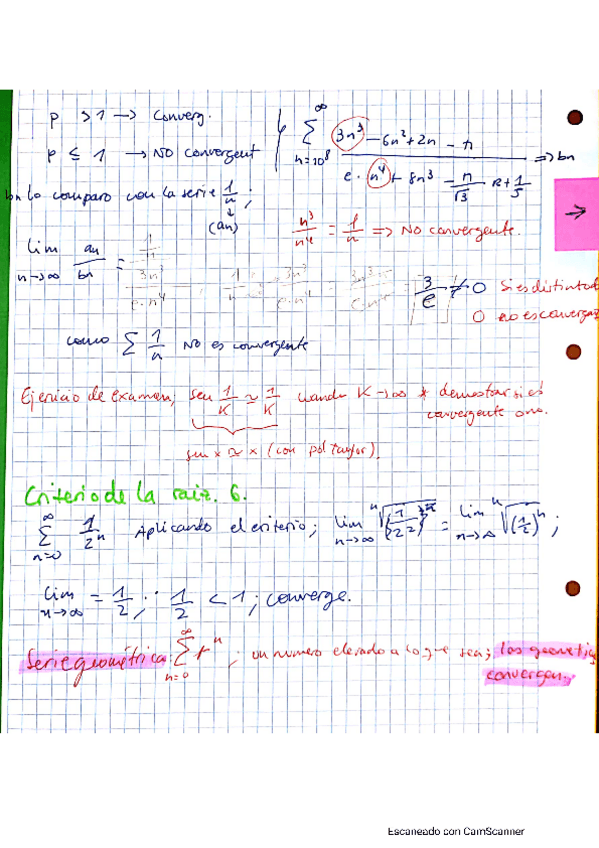 p > 1 → Converg.
p ≤ 1 → NO convergent
∞ Σ n=10⁸ 3n³ - 6n² + 2n - π / e · n⁴ + 8n³ - π/√3 n + 1/5 => bn
bn lo comparo con la serie 1/n ;
(an)
n³/n⁴ = 1/n => No convergente.
lim n→∞ an/bn = 1/n / 3n³/e·n⁴ = 3/e ≠ 0 Si es distinto de
0 no es converg
como Σ 1/n NO es convergente
Ejercicio de examen; sen 1/K ≃ 1/K cuando K→∞ * demostrar si es
convergente o no.
sen x ≃ x (con pol taylor).
Criterio de la raiz. 6.
∞ Σ n=0 1/2ⁿ Aplicando el criterio; lim n→∞ = lim n→∞ ⁿ√(1/2)ⁿ ;
lim n→∞ = 1/2, ∴ 1/2 < 1; converge.
Serie geométrica: ∞ Σ n=0 rⁿ ; un numero elevado a lo que sea; las geometri
convergen.
Escaneado con CamScanner